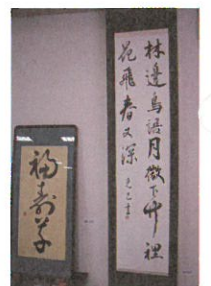 林邊鳥語月微下竹裡
花飛春又深
福壽草